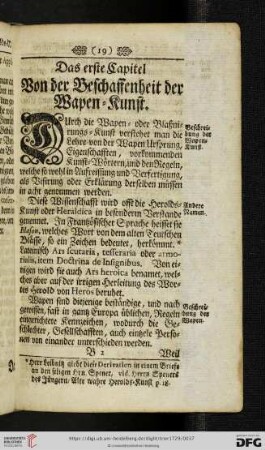 (19)
Das erste Capitel
Von der Beschaffenheit der
Wapen-Kunst.
DUrch die Wapen- oder Blasoni-
rungs-Kunst verstehet man die
Lehre von der Wapen Ursprung,
Eigenschafften, vorkommenden
Kunst-Wörtern, und den Regeln,
welche so wohl in Aufreissung und Verfertigung,
als Visirung oder Erklärung derselben müssen
in acht genommen werden.
Beschrei-
bung der
Wapen-
Kunst.
Diese Wissenschafft wird offt die Herolds-
Kunst oder Heraldica in besonderm Verstande
genennet. In Frantzösischer Sprache heisset sie
Blason, welches Wort von dem alten Teutschen
Blässe, so ein Zeichen bedeutet, herkömmt. *
Lateinisch Ars scutaria, tesseraria oder armo-
rialis, item Doctrina de Insignibus. Von ei-
nigen wird sie auch Ars heroica benamet, wel-
ches aber auf der irrigen Herleitung des Wor-
tes Herold von Heros beruhet.
Andere
Namen.
Wapen sind diejenige beständige, und nach
gewissen, fast in gantz Europa üblichen, Regeln
eingerichtete Kennzeichen, wodurch die Ge-
schlechter, Gesellschafften, auch eintzele Perso-
nen von einander unterschieden werden.
Beschrei-
bung der
Wapen.
B 2 Weil
* Herr Leibnitz giebt diese Derivation in einem Briefe
an den seligen Hrn. Spener, vid. Herrn Speners
des Jüngern, Alte wahre Herolds-Kunst p. 18.